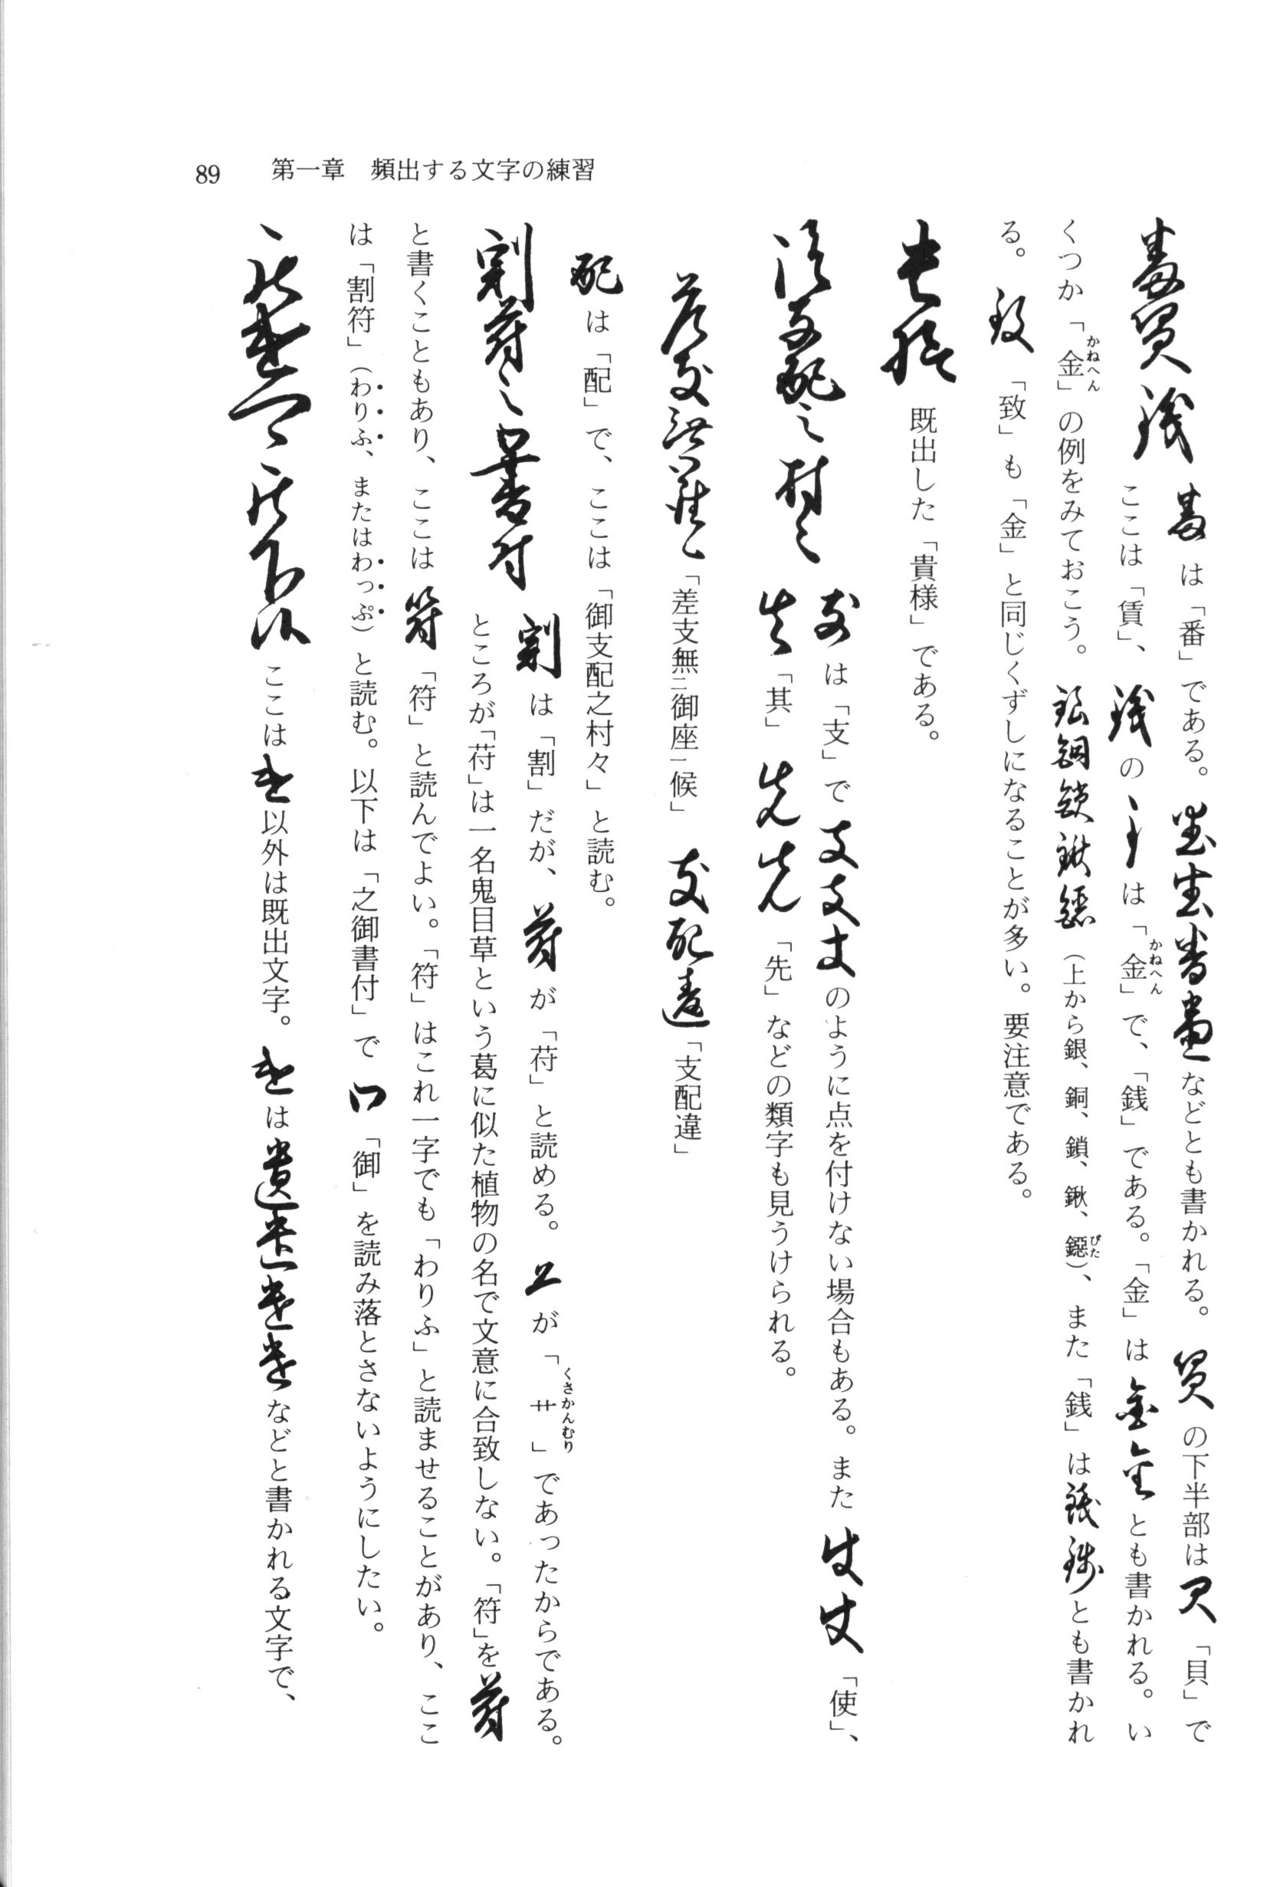 89　第一章　頻出する文字の練習
番賃銭　番は「番」である。などとも書かれる。の下半部は「貝」で
ここは「賃」、銭のは「金」で、「銭」である。「金」は金金とも書かれる。い
くつか「金」の例をみておこう。銀銅鎖鍬鐚（上から銀、銅、鎖、鍬、鐚）、また「銭」は銭銭とも書かれ
る。致「致」も「金」と同じくずしになることが多い。要注意である。
貴様　既出した「貴様」である。
御支配之村々　支は「支」で支支支のように点を付けない場合もある。また使使「使」、
其「其」先先「先」などの類字も見うけられる。
差支無御座候「差支無二御座一候」支配違「支配違」
配は「配」で、ここは「御支配之村々」と読む。
割苻之御書付　割は「割」だが、苻が「苻」と読める。が「艹」であったからである。
ところが「苻」は一名鬼目草という葛に似た植物の名で文意に合致しない。「符」を苻
と書くこともあり、ここは符「符」と読んでよい。「符」はこれ一字でも「わりふ」と読ませることがあり、ここ
は「割符」（わりふ、またはわっぷ）と読む。以下は「之御書付」で御「御」を読み落とさないようにしたい。
ここは以外は既出文字。は遣遣遣遣などと書かれる文字で、